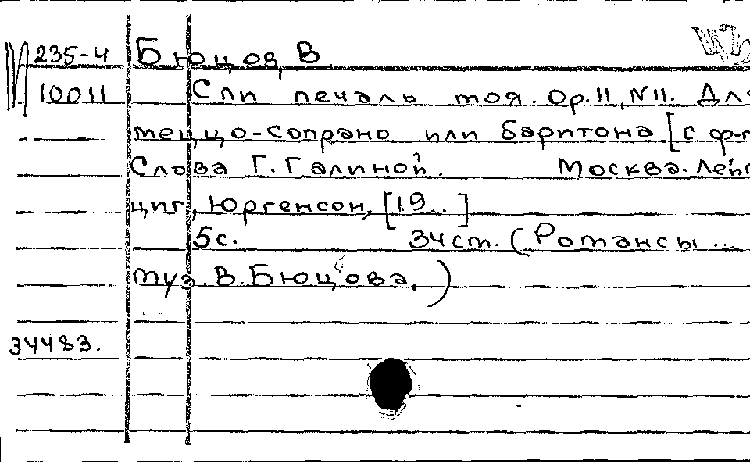 235-4 Бюцов, В.
10011 Спи печаль моя. Op. 11, № 11. Для
меццо-сопрано или баритона [с ф-п
Слова Г. Галиной. Москва. Лейп
циг, Юргенсон, [19..]
5с. 34 см. (Романсы ...
муз. В. Бюцова.)
34483.